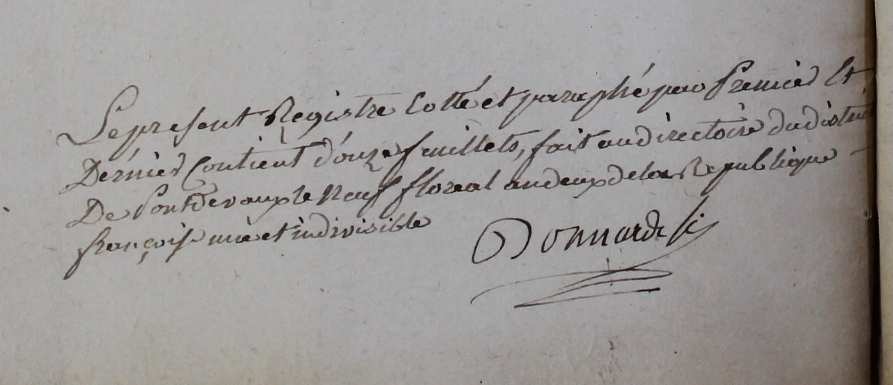 Le present Registre Cotté et paraphé par Premier Et
Dérnier Contient d'ouze feuillets, fait au directoire du district
De Pontdevaux le Neuf floreal an deux de la Republique
françoise une et indivisible
Bonnardel